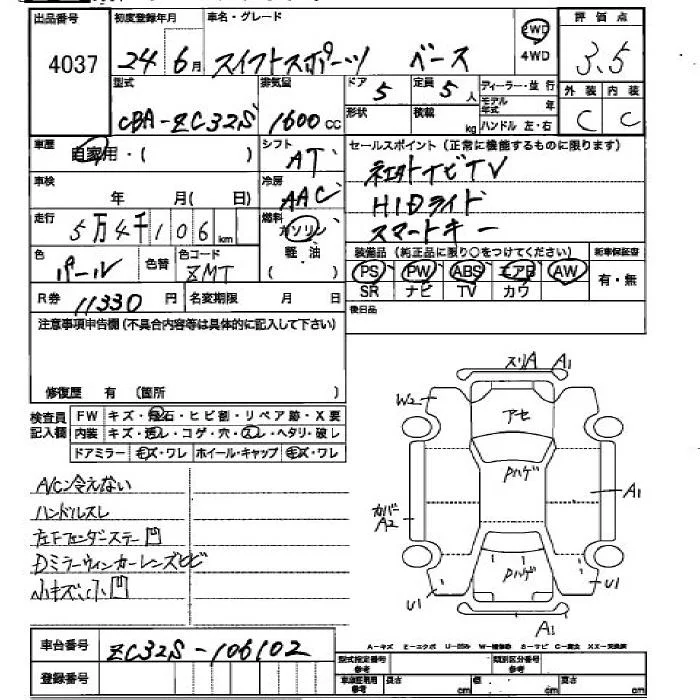 出品番号 初度登録年月 車名・グレード 2WD 4WD 評価点
4037 24 6月 スイフトスポーツ ベース 3.5
型式 排気量 ドア 5 定員 5人 ディーラー・並行 外装 内装
CBA-ZC32S 1600cc 形状 積載 kg モデル年式 年 ハンドル 左・右 C C
車歴 自家用・( ) シフト AT セールスポイント(正常に機能するものに限ります)
車検 年 月( 日) 冷房 AAC 社外ナビTV
走行 5万4千106km 燃料 ガソリン 軽油 ( ) HIDライド
スマートキー
色 パール 色替 色コード ZMT 装備品(純正品に限り○をつけてください) 新車保証書
PS PW ABS エアB AW 有・無
R券 11330円 名変期限 月 日 SR ナビ TV カワ
注意事項申告欄(不具合内容等は具体的に記入して下さい) 後日品
修復歴 有 (箇所 )
検査員記入欄 FW キズ・飛石・ヒビ割・リペア跡・X要
内装 キズ・汚レ・コゲ・穴・スレ・ヘタリ・破レ
ドアミラー キズ・ワレ ホイール・キャップ キズ・ワレ
A/C冷えない
ハンドルスレ
左Fフェンダーステー凹
Dミラーウィンカーレンズヒビ
小キズ小凹
スリA A1
W2
アセ
Pハゲ
カバーA2 A1
Pハゲ
U1 U1
A1
車台番号 ZC32S-106102
A-キズ E-エクボ U-凹み W-補修跡 S-サビ C-腐食 XX-交換済
登録番号 型式指定番号 類別区分番号
車庫証明用参考 長さ cm 幅 cm 高さ cm